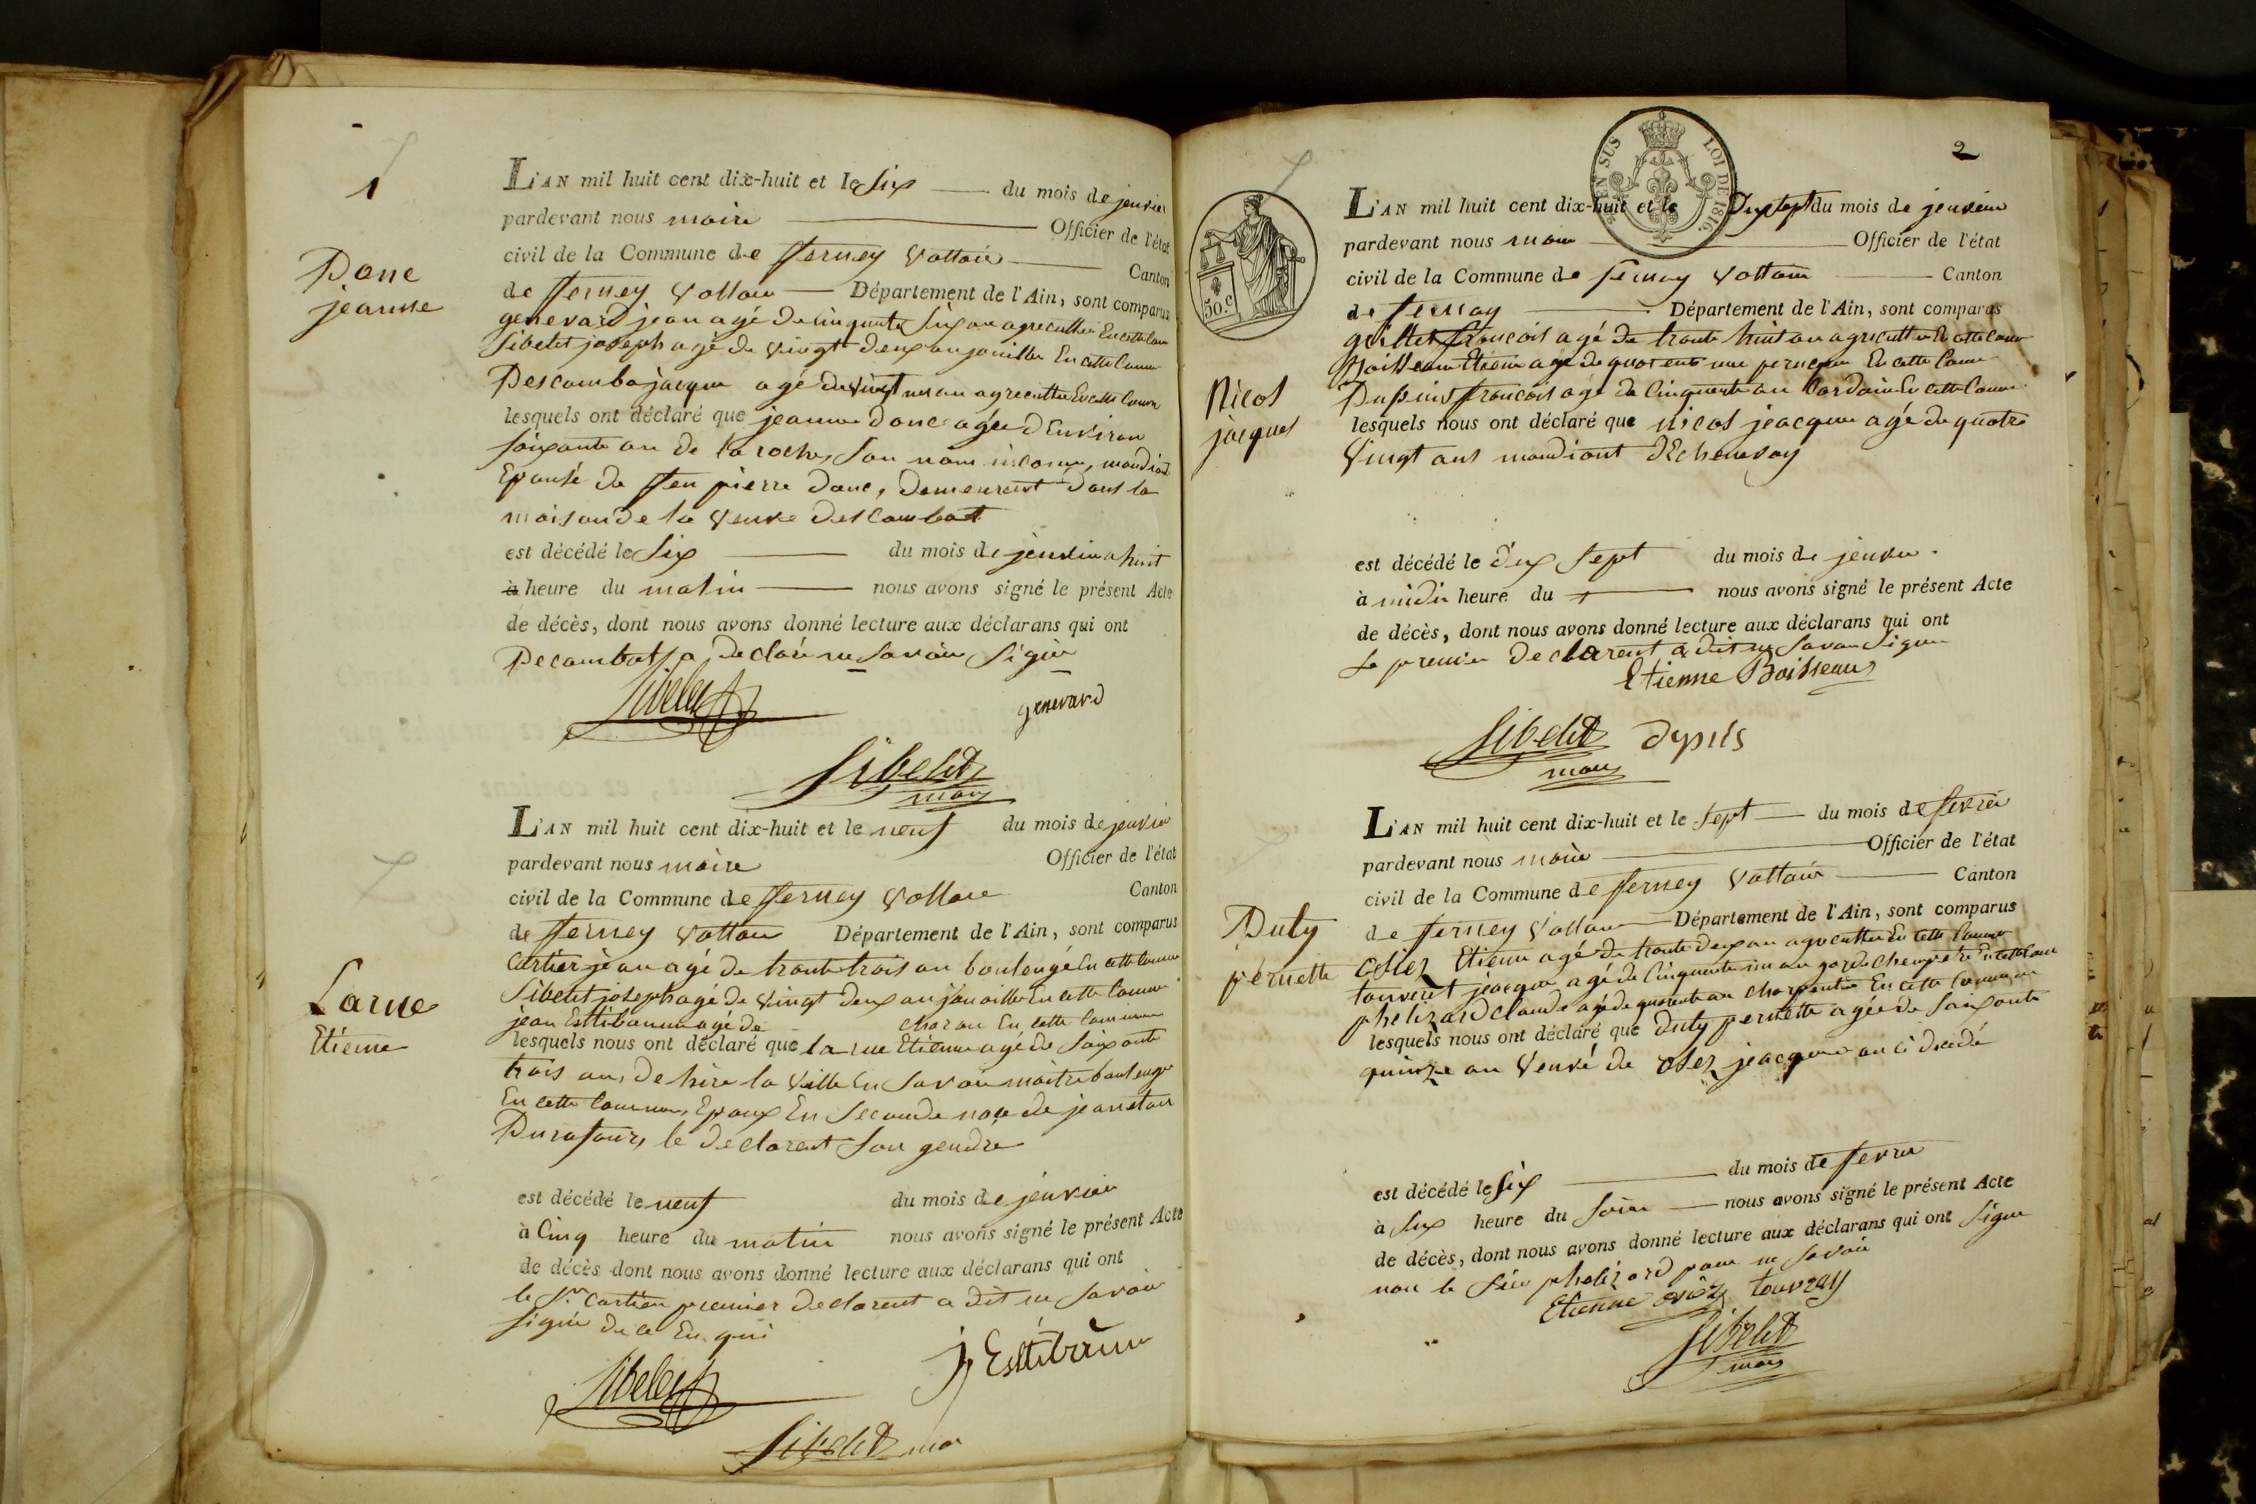 1
Donc
jeanne
L'AN mil huit cent dix-huit et le six du mois de jenvier
pardevant nous maire Officier de l'état
civil de la Commune de fferney Voltaire Canton
de fferney Voltaire Département de l'Ain, sont comparus
genevard jean agé de cinquante six an agreculteur En cette Com
Sibelet joseph agé de vingt deux an joailler En cette Comm
Descomba jacque agé de vingt un an agreculteur En cette Comm
lesquels ont déclaré que jeanne donc agée d'Environ
soixante an de la roche, son nom inconu, mandiant
Epouse de ffeu pierre donc, demeurent dans la
maison de la Veuve descombat
est décédé le six du mois de jenvier a huit
à heure du matin nous avons signé le présent Acte
de décès, dont nous avons donné lecture aux déclarans qui ont
Decombat a declaré ne savoir signer
Sibelet
genevard
Sibelet
maire
Larue
Etienne
L'AN mil huit cent dix-huit et le neuf du mois de jenvier
pardevant nous maire Officier de l'état
civil de la Commune de fferney Voltaire Canton
de fferney Voltaire Département de l'Ain, sont comparus
Cartier jean agé de trante trois an boulengé En cette Comm
Sibelet joseph agé de vingt deux an joailler En cette Comm
jean Esttibanne agé de charon En cette Commune
lesquels nous ont déclaré que la rue Etienne agé de soixante
trois an, de la Ville En Savoie maitre boulenger
En cette Commune, Epoux En Seconde noce de
Durafour, le declarent son gendre
est décédé le neuf du mois de jenvier
à Cinq heure du matin nous avons signé le présent Acte
de décès dont nous avons donné lecture aux déclarans qui ont
le Sr. Cartier premier declarent a dit ne savoir
signer de ce Enquis
Sibelet
j Esttibanne
Sibelet mai
2
SUS
LOI DE 1816.
50.c
Nicos
jacques
L'AN mil huit cent dix-huit et le dix sept du mois de jenvier
pardevant nous maire Officier de l'état
civil de la Commune de fferney Voltaire Canton
de fferney Département de l'Ain, sont comparus
francois agé de trante huit an agreculteur En cette Comm
Boisseau Etienne agé de quarente une En cette Comm
Dupuis francois agé de Cinquente an En cette Comm
lesquels nous ont déclaré que nicos jeacque agé de quatre
Vingt ans mandiant d'Echenevay
est décédé le dix sept du mois de jenvier
à midi heure du nous avons signé le présent Acte
de décès, dont nous avons donné lecture aux déclarans qui ont
Le premier declarent a dit ne savoir signer
Etienne Boisseau
Sibelet dypiis
maire
Duty
pernette
L'AN mil huit cent dix-huit et le sept du mois de fevrier
pardevant nous maire Officier de l'état
civil de la Commune de fferney Voltaire Canton
de fferney Voltaire Département de l'Ain, sont comparus
Etienne agé de trante deux an agreculteur En cette Commune
jeacque agé de Cinquente un an garde champetre En cette Com
phelizard claude agé de quarente an charpentier En cette Commune
lesquels nous ont déclaré que duty pernette agée de soixante
quinze an Veuve de osez jeacque decedé
est décédé le six du mois de fevrier
à six heure du soir nous avons signé le présent Acte
de décès, dont nous avons donné lecture aux déclarans qui ont signer
non le Sieur phelizard pour ne savoir
Etienne osez touvray
Sibelet
maire